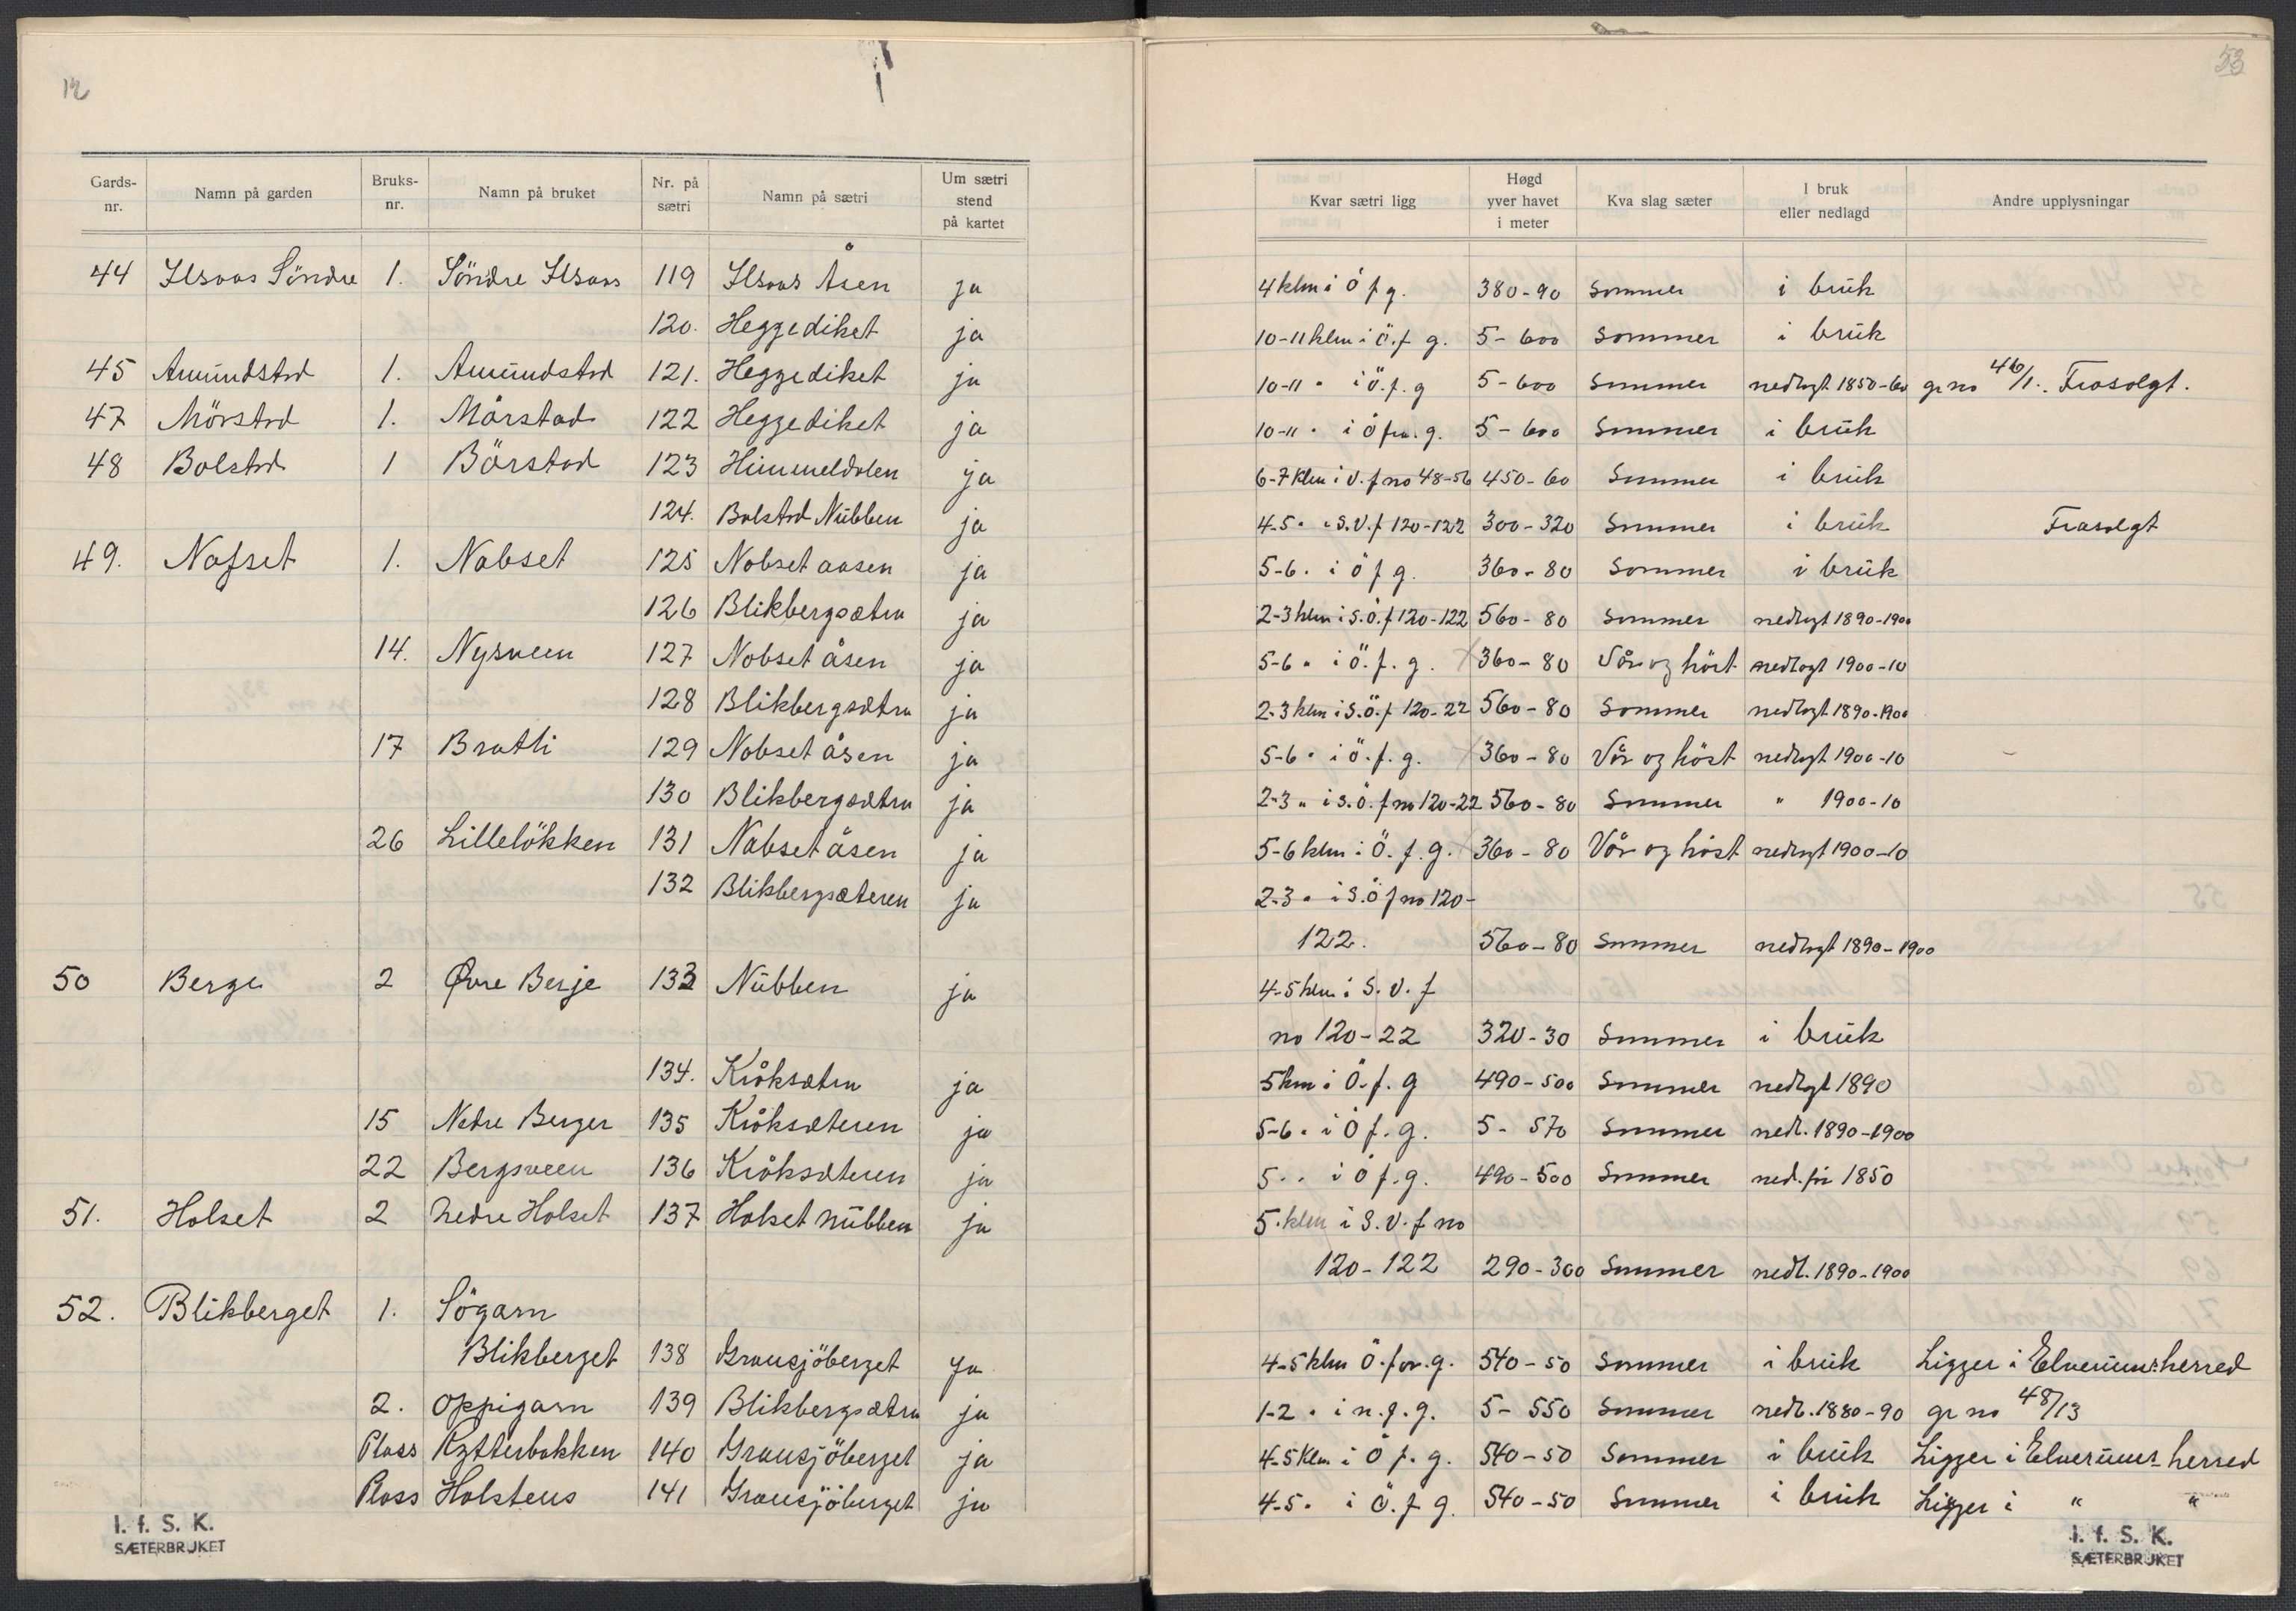 12
53
Gards-nr. Namn på garden Bruks-nr. Namn på bruket Nr. på sætri Namn på sætri Um sætri stend på kartet Kvar sætri ligg Høgd yver havet i meter Kva slag sæter I bruk eller nedlagd Andre upplysningar
44 Ilsaas Söndre 1. Söndre Ilsaas 119 Ilsaas Åsen ja 4 klm i Ö f g. 380-90 Sommer i brük
120. Heggediket ja 10-11 klm i Ö. f g. 5-600 Sommer i brük
45 Amündstad 1. Amündstad 121. Heggediket ja 10-11 " i Ö. f. g 5-600 Sommer nedlagt 1850-60 gr no 46/1. Frasolgt.
47 Mörstad 1. Mårstad 122 Heggediket ja 10-11 " i Ö fra. g. 5-600 Sommer i brük
48 Bolstad 1 Börstad 123 Himmeldalen ja 6-7 klm i V. f no 48-56 450-60 Sommer i brük
124. Bolstad Nübben ja 4-5 " i S.V. f 120-122 300-320 Sommer i brük Frasolgt
49. Nafset 1. Nabset 125 Nobset aasen ja 5-6 " i ö f g. 360-80 Sommer i brük
126 Blikbergsætra ja 2-3 klm i S.Ö. f 120-122 560-80 Sommer nedlagt 1890-1900
14. Nysveen 127 Nobset åsen ja 5-6 " i Ö. f. g. 360-80 Vår og höst nedlagt 1900-10
128 Blikbergsætra ja 2-3 klm i S.Ö. f 120-22 560-80 Sommer nedlagt 1890-1900
17 Bratli 129 Nobset åsen ja 5-6 " i ö. f. g. 360-80 Vår og höst nedlagt 1900-10
130 Blikbergsætra ja 2-3 " i S.Ö. f no 120-22 560-80 Sommer " 1900-10
26 Lillelökken 131 Nabset åsen ja 5-6 klm i Ö. f. g. 360-80 Vår og höst nedlagt 1900-10
132 Blikbergsæteren ja 2-3 " i S.Ö f no 120-
122. 560-80 Sommer nedlagt 1890-1900
50 Berge 2 Øvre Berje 133 Nübben ja 4-5 klm i S. V. f
no 120-22 320-30 Sommer i brük
134. Kråksætra ja 5 km i Ö. f. g 490-500 Sommer nedlagt 1890
15 Nedre Berger 135 Kråksæteren ja 5-6 " i Ö f. g. 5-570 Sommer nedl. 1890-1900
22 Bergsveen 136 Kråksæteren ja 5 " i ö f. g. 490-500 Sommer ned. för 1850
51. Holset 2 Nedre Holset 137 Holset nübben ja 5 klm i S. V. f no
120-122 290-300 Sommer nedl. 1890-1900
52. Blikberget 1. Sögarn
Blikberget 138 Gransjöberget ja 4-5 klm Ö. for. g. 540-50 Sommer i brük Ligger i Elverüms herred
2. Oppigarn 139 Blikbergsætra ja 1-2 " i n. f. g. 5-550 Sommer nedl. 1880-90 gr no 48/13
Plass Kytterbakken 140 Gransjöberget ja 4-5 klm i Ö f. g. 540-50 Sommer i brük Ligger i Elverüms herred
Plass Holsteus 141 Gransjöberget ja 4-5 " i Ö. f g. 540-50 Sommer i brük Ligger i " "
I. f. S. K.
SÆTERBRUKET
I. f. S. K.
SÆTERBRUKET